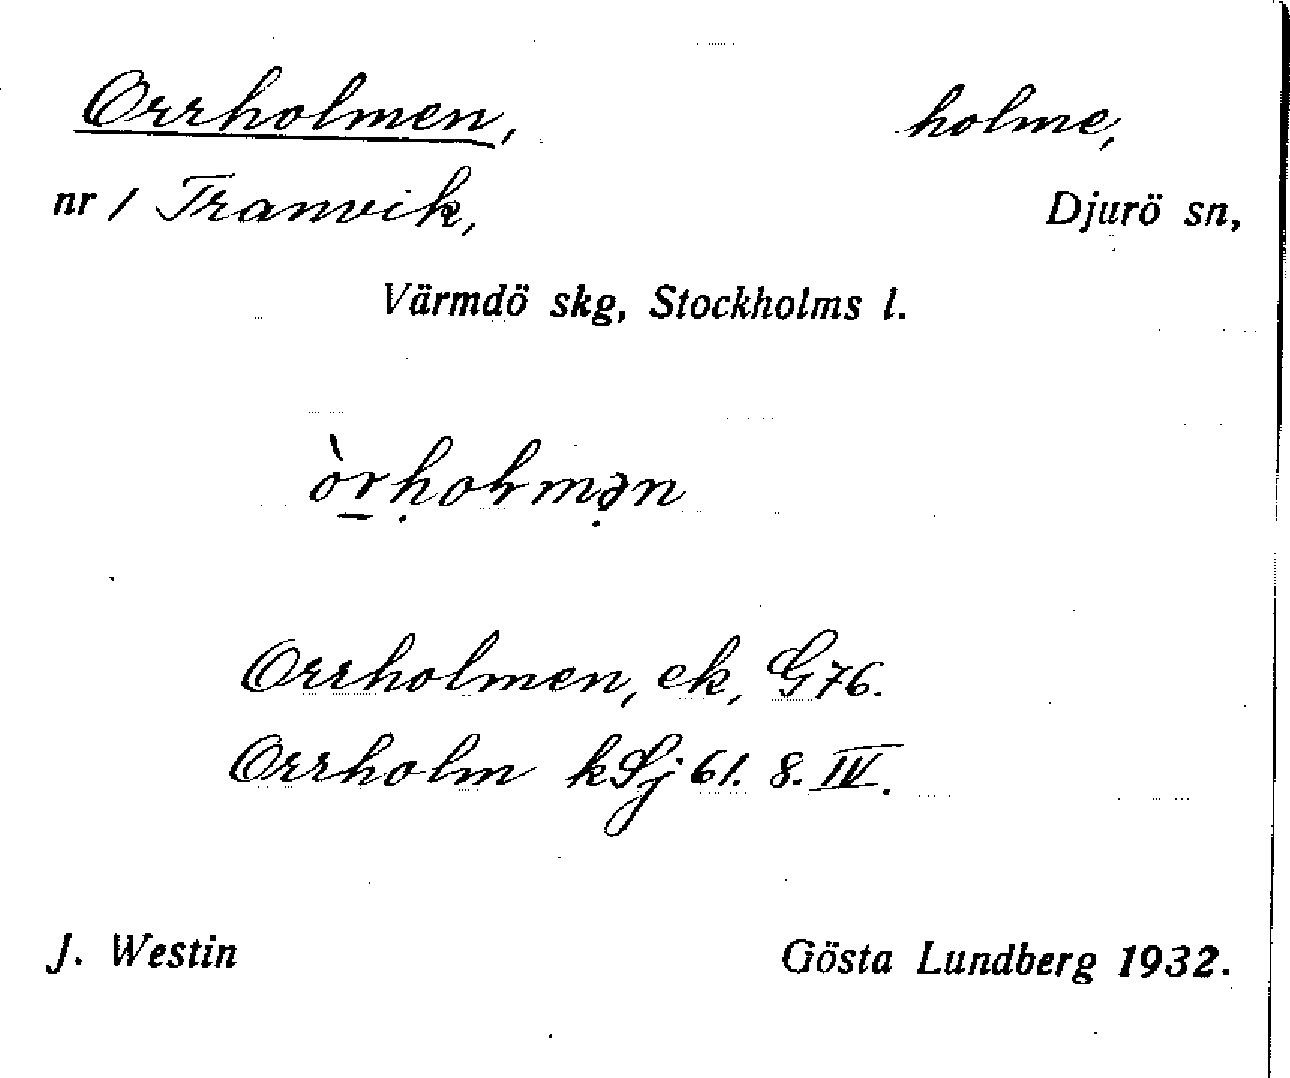 Orrholmen, holme,
nr 1 Tranvik, Djurö sn,
Värmdö skg, Stockholms l.
Orrholmen, ek, G 76.
Orrholm kSj 61. 8. IV.
J. Westin Gösta Lundberg 1932.